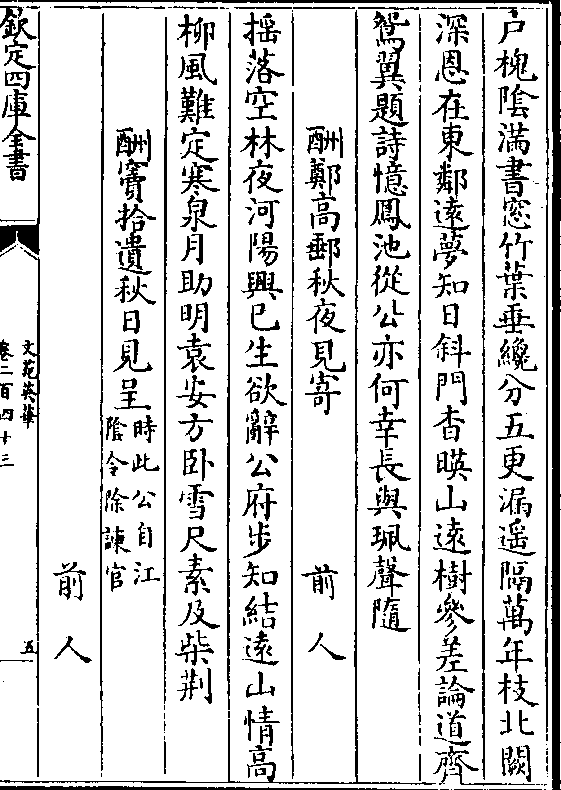 戸槐隂滿書窓竹葉垂纔分五更漏遥隔萬年枝北闕
深恩在東鄰逺夢知日斜門杳暎山逺樹參差論道齊
鴛翼題詩憶鳳池從公亦何幸長與珮聲隨
酬鄭髙郵秋夜見寄 前人
揺落空林夜河陽興已生欲辭公府歩知結逺山情髙
栁風難定寒泉月助明袁安方卧雪尺素及柴荆
酬竇拾遺秋日見呈時此公自江隂令除諫官 前人
欽定四庫全書
文苑英華
卷二百四十三
五